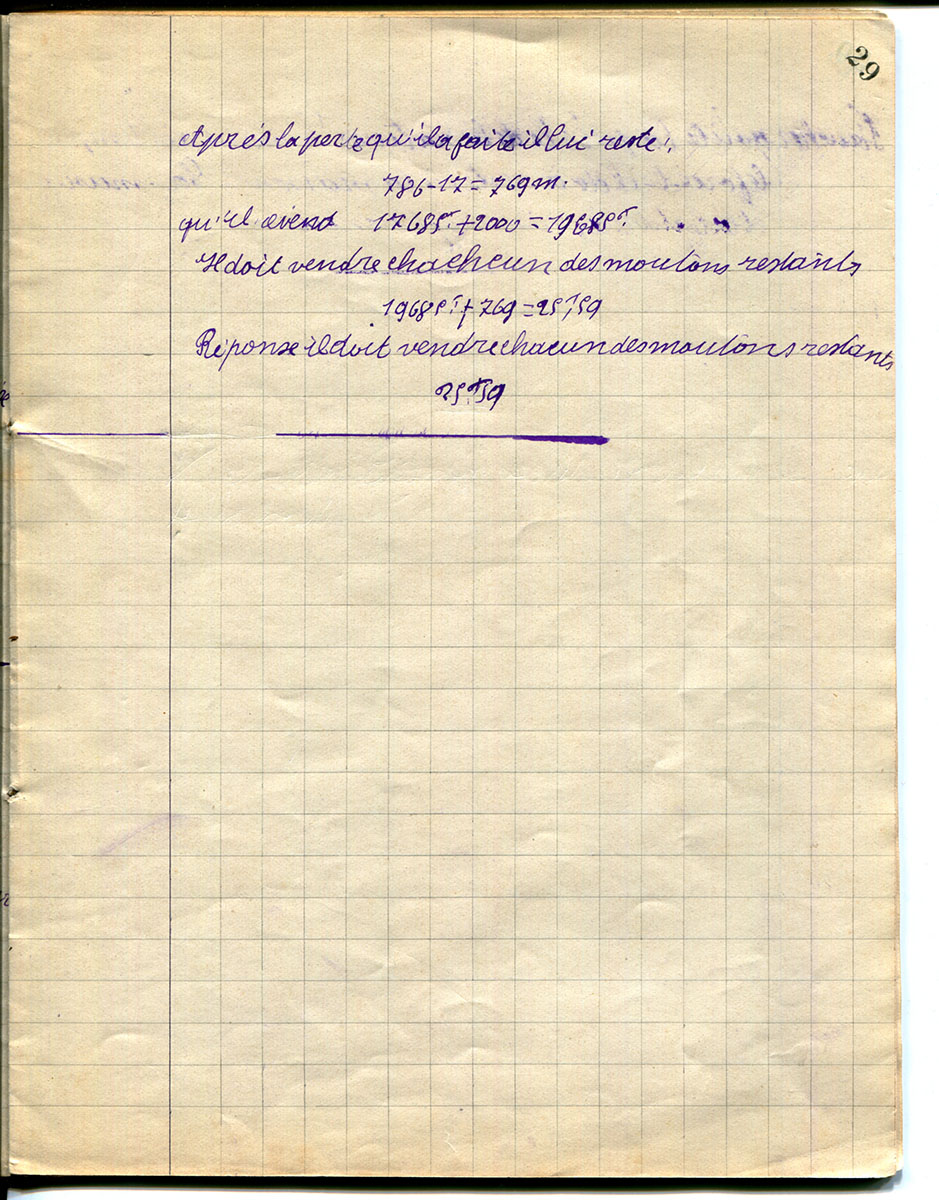 29
Après la perte qu'il a faite il lui reste :
786 - 17 = 769 m.
qu'il 17685f + 2000 = 19685f
Il doit vendre chacheun des moutons restants
19685f : 769 = 25f,59
Réponse il doit vendre chacun des moutons restants
25f,59